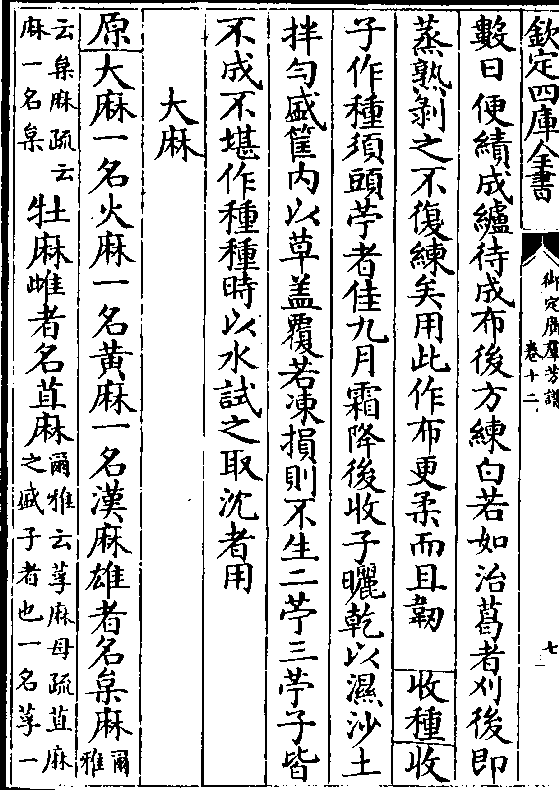 欽定四庫全書
御定廣羣芳譜
卷十二
七
數日便績成纑待成布後方練白若如治葛者刈後即
蒸熟剝之不復練矣用此作布更柔而且韌 收種收
子作種須頭苧者佳九月霜降後收子曬乾以濕沙土
拌勻盛筐内以草盖覆若凍損則不生二苧三苧子皆
不成不堪作種種時以水試之取沈者用
大麻
原大麻一名火麻一名黄麻一名漢麻雄者名枲麻爾雅
云枲麻疏云麻一名枲牡麻雌者名苴麻爾雅云莩麻母疏苴麻之盛子者也一名莩一